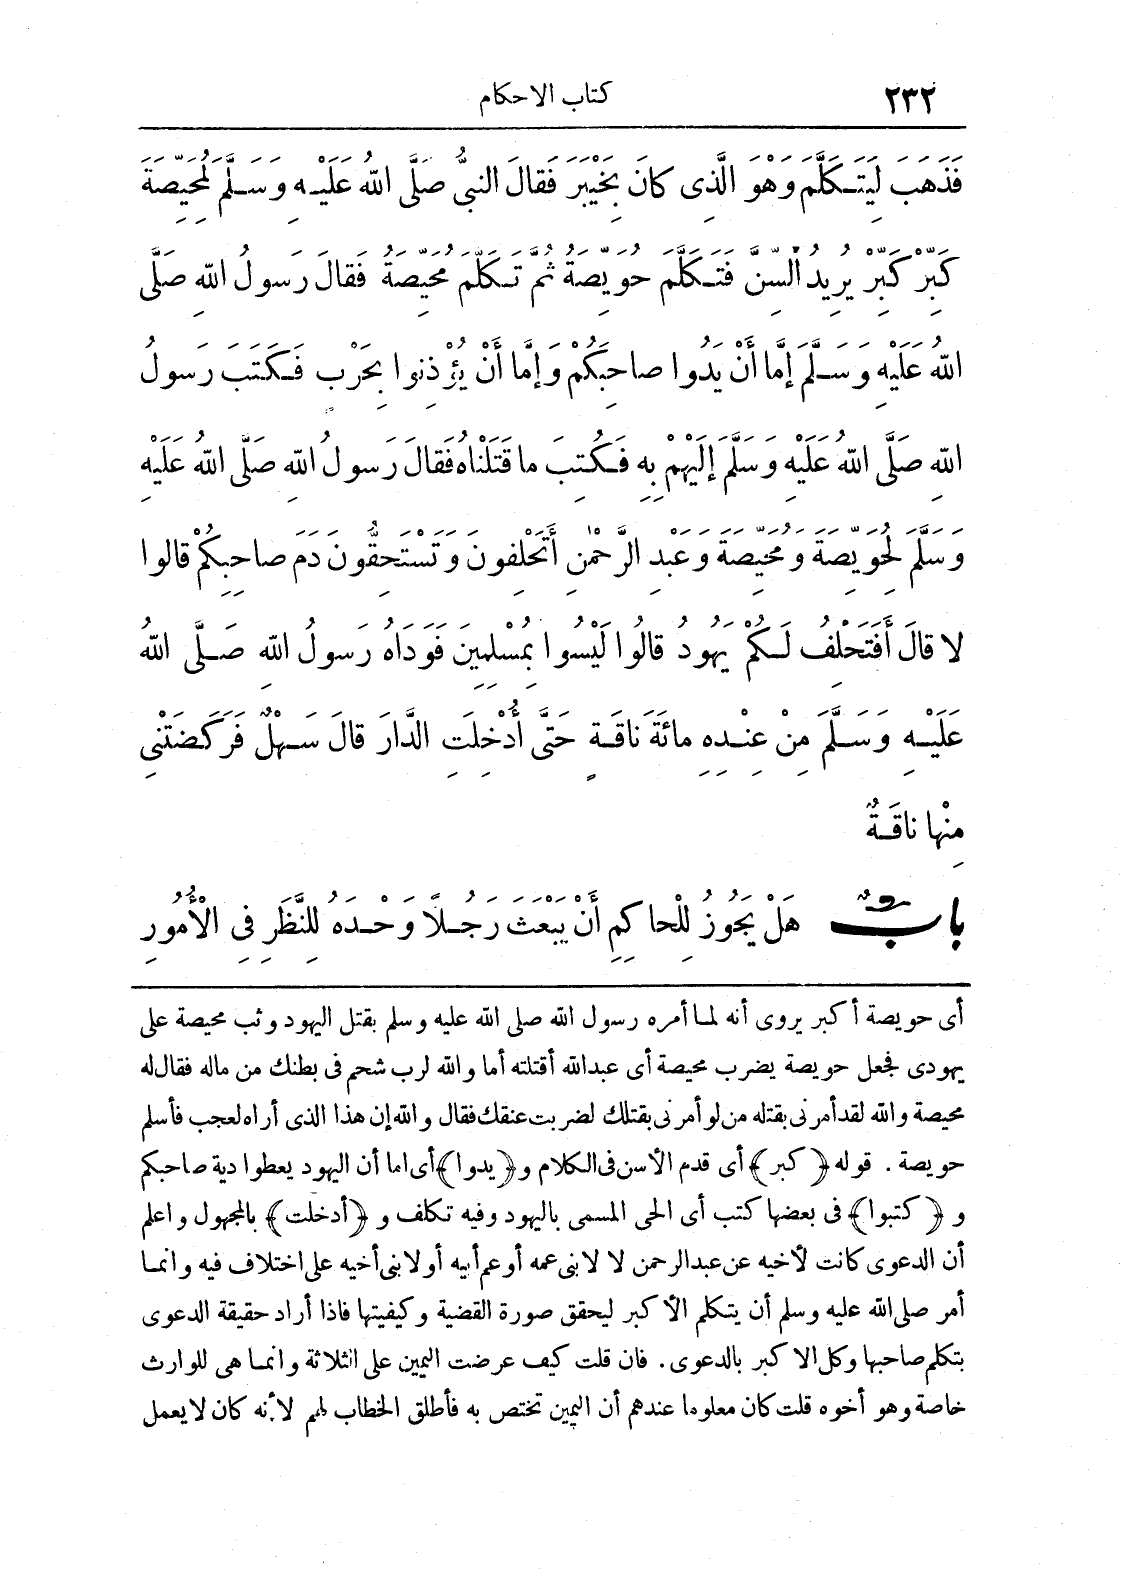 ٢٣٢ كتاب الاحكام
فَذَهَبَ لِيَتَكَلَّمَ وَهْوَ الَّذِى كانَ بِخَيْبَرَ فَقالَ النبىُّ صَلَّى اللهُ عَلَيْهِ وَسَلَّمَ لِمُحَيِّصَةَ
كَبِّرْ كَبِّرْ يُرِيدُ السِّنَّ فَتَكَلَّمَ حُوَيِّصَةُ ثُمَّ تَكَلَّمَ مُحَيِّصَةُ فَقالَ رَسولُ اللهِ صَلَّى
اللهُ عَلَيْهِ وَسَلَّمَ إِمَّا أَنْ يَدُوا صاحِبَكُمْ وَإِمَّا أَنْ يُؤْذِنوا بِحَرْبٍ فَكَتَبَ رَسولُ
اللهِ صَلَّى اللهُ عَلَيْهِ وَسَلَّمَ إِلَيْهِمْ بِهِ فَكُتِبَ ما قَتَلْناهُ فَقالَ رَسولُ اللهِ صَلَّى اللهُ عَلَيْهِ
وَسَلَّمَ لِحُوَيِّصَةَ وَمُحَيِّصَةَ وَعَبْدِ الرَّحْمٰنِ أَتَحْلِفونَ وَتَسْتَحِقُّونَ دَمَ صاحِبِكُمْ قالوا
لا قالَ أَفَتَحْلِفُ لَكُمْ يَهُودُ قالُوا لَيْسُوا بِمُسْلِمِينَ فَوَدَاهُ رَسولُ اللهِ صَلَّى اللهُ
عَلَيْهِ وَسَلَّمَ مِنْ عِنْدِهِ مائَةَ ناقَةٍ حَتَّى أُدْخِلَتِ الدَّارَ قالَ سَهْلٌ فَرَكَضَتْنِى
مِنْها ناقَةٌ
بابٌ هَلْ يَجُوزُ لِلْحاكِمِ أَنْ يَبْعَثَ رَجُلاً وَحْدَهُ لِلنَّظَرِ فِى الْأُمُورِ
أى حويصة أكبر يروى أنه لما أمره رسول الله صلى الله عليه وسلم بقتل اليهود وثب محيصة على
يهودى فجعل حويصة يضرب محيصة أى عبدالله أقتلته أما والله لرب شحم فى بطنك من ماله فقال له
محيصة والله لقد أمرنى بقتله من لو أمرنى بقتلك لضربت عنقك فقال والله إن هذا الذى أراه لعجب فأسلم
حويصة . قوله ﴿كبر﴾ أى قدم الأسن فى الكلام و﴿يدوا﴾ أى اما أن اليهود يعطوا دية صاحبكم
و ﴿كتبوا﴾ فى بعضها كتب أى الحى المسمى باليهود وفيه تكلف و ﴿أدخلت﴾ بالمجهول واعلم
أن الدعوى كانت لأخيه عن عبدالرحمن لا لابنى عمه أو عم أبيه أو لابنى أخيه على اختلاف فيه وانما
أمر صلى الله عليه وسلم أن يتكلم الأكبر ليحقق صورة القضية وكيفيتها فاذا أراد حقيقة الدعوى
يتكلم صاحبها وكل الاكبر بالدعوى . فان قلت كيف عرضت اليمين على الثلاثة وانما هى للوارث
خاصة وهو أخوه قلت كان معلوما عندهم أن اليمين تختص به فأطلق الخطاب لهم لأنه كان لا يعمل